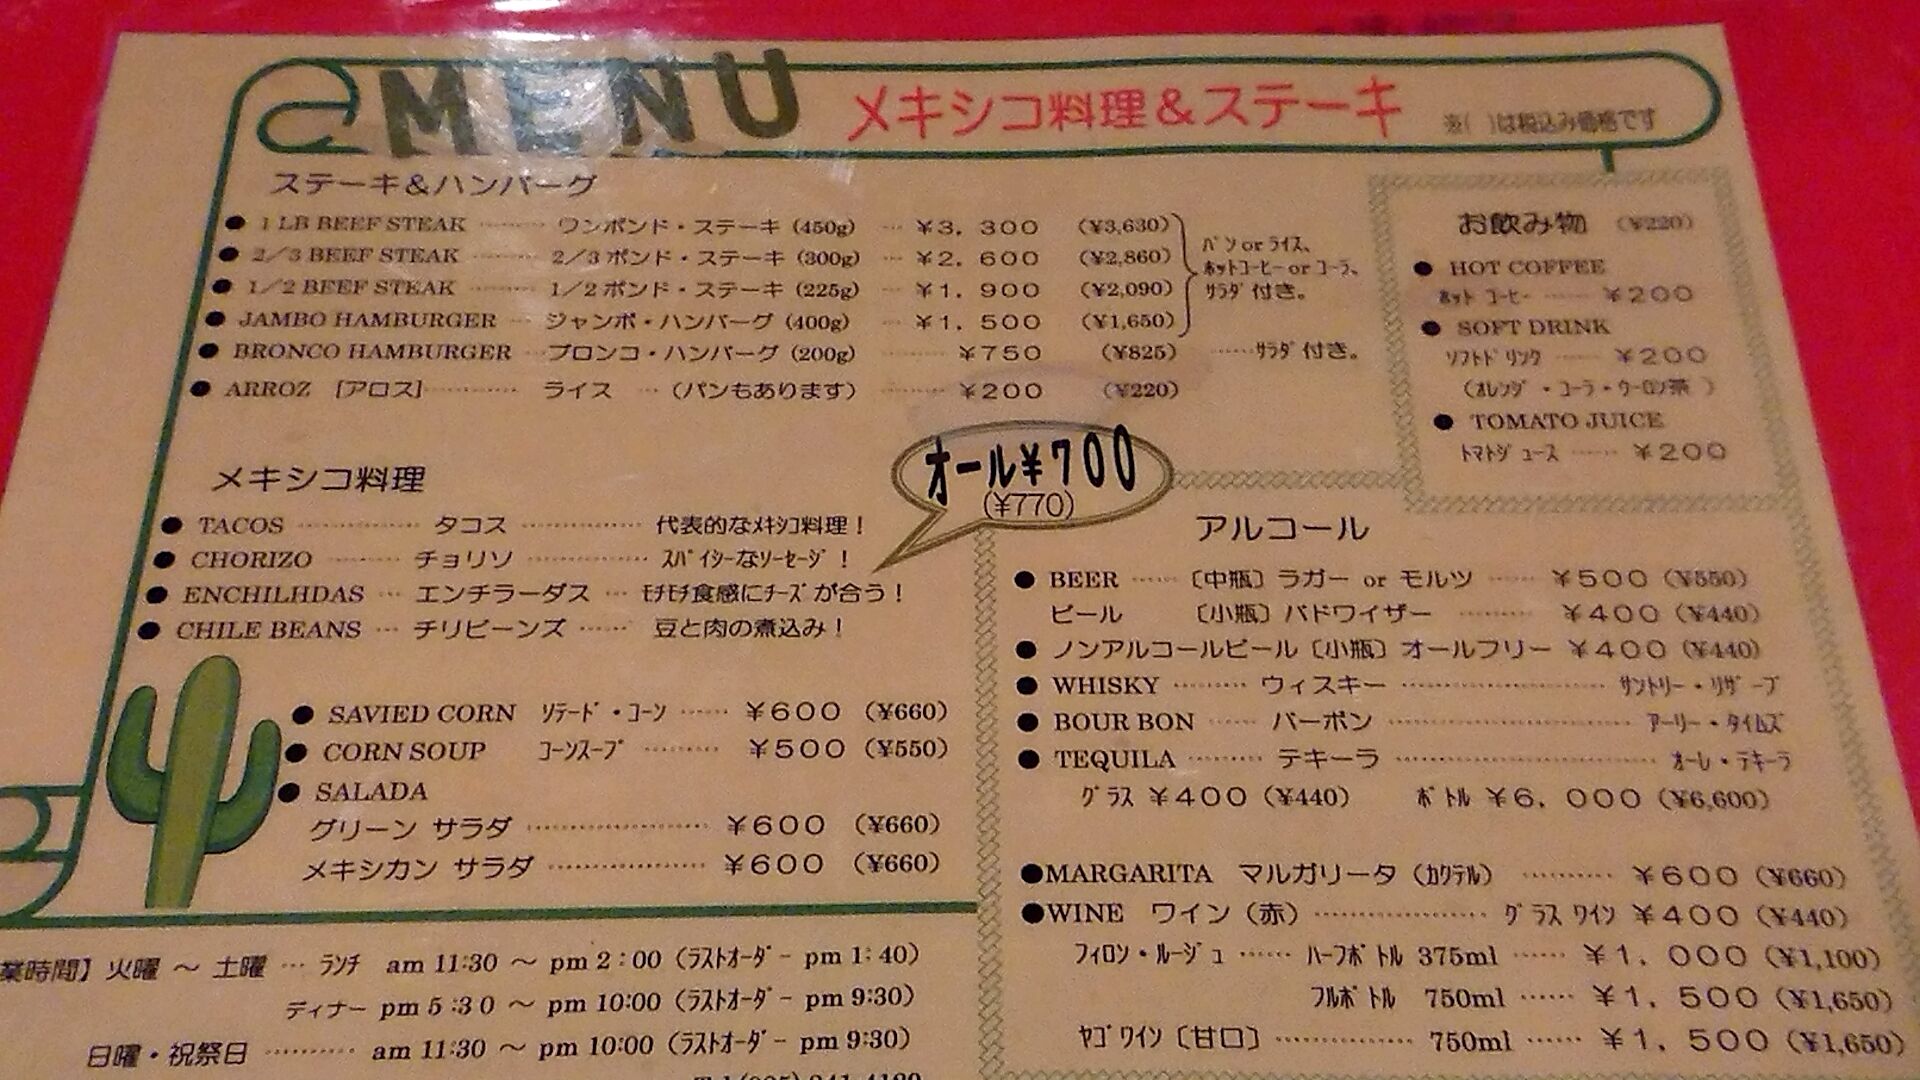 MENU メキシコ料理&ステーキ ※( )は税込み価格です
ステーキ&ハンバーグ
● 1 LB BEEF STEAK ……… ワンポンド・ステーキ (450g) … ¥3,300 (¥3,630)
● 2/3 BEEF STEAK ……… 2/3ポンド・ステーキ (300g) … ¥2,600 (¥2,860)
● 1/2 BEEF STEAK ……… 1/2ポンド・ステーキ (225g) … ¥1,900 (¥2,090)
● JAMBO HAMBURGER … ジャンボ・ハンバーグ (400g) … ¥1,500 (¥1,650)
パンorライス、
ホットコーヒーorコーラ、
サラダ付き。
● BRONCO HAMBURGER …ブロンコ・ハンバーグ (200g) ……… ¥750 (¥825) ……サラダ付き。
● ARROZ [アロス]………… ライス …(パンもあります) ……… ¥200 (¥220)
お飲み物 (¥220)
● HOT COFFEE
ホット コーヒー …… ¥200
● SOFT DRINK
ソフトドリンク …… ¥200
(オレンジ・コーラ・ウーロン茶)
● TOMATO JUICE
トマトジュース …… ¥200
メキシコ料理
オール¥700
(¥770)
● TACOS ………… タコス ………… 代表的なメキシコ料理!
● CHORIZO ……… チョリソ ………… スパイシーなソーセージ!
● ENCHILHDAS … エンチラーダス … モチモチ食感にチーズが合う!
● CHILE BEANS … チリビーンズ …… 豆と肉の煮込み!
● SAVIED CORN ソテード・コーン …… ¥600 (¥660)
● CORN SOUP コーンスープ ……… ¥500 (¥550)
● SALADA
グリーン サラダ ……………… ¥600 (¥660)
メキシカン サラダ …………… ¥600 (¥660)
アルコール
● BEER …… 〔中瓶〕ラガー or モルツ …… ¥500 (¥550)
ビール 〔小瓶〕バドワイザー ……… ¥400 (¥440)
● ノンアルコールビール〔小瓶〕オールフリー ¥400 (¥440)
● WHISKY ……… ウィスキー ………………… サントリー・リザーブ
● BOUR BON …… バーボン …………………… アーリー・タイムズ
● TEQUILA ……… テキーラ …………………… オーレ・テキーラ
グラス ¥400 (¥440) ボトル ¥6,000 (¥6,600)
●MARGARITA マルガリータ(カクテル) ……… ¥600 (¥660)
●WINE ワイン(赤)……………… グラスワイン ¥400 (¥440)
フィロン・ルージュ …… ハーフボトル 375ml …… ¥1,000 (¥1,100)
フルボトル 750ml …… ¥1,500 (¥1,650)
ヤゴワイン〔甘口〕………… 750ml …… ¥1,500 (¥1,650)
業時間】火曜 ~ 土曜 … ランチ am 11:30 ~ pm 2:00 (ラストオーダー pm 1:40)
ディナー pm 5:30 ~ pm 10:00 (ラストオーダー pm 9:30)
日曜・祝祭日 ……… am 11:30 ~ pm 10:00 (ラストオーダー pm 9:30)